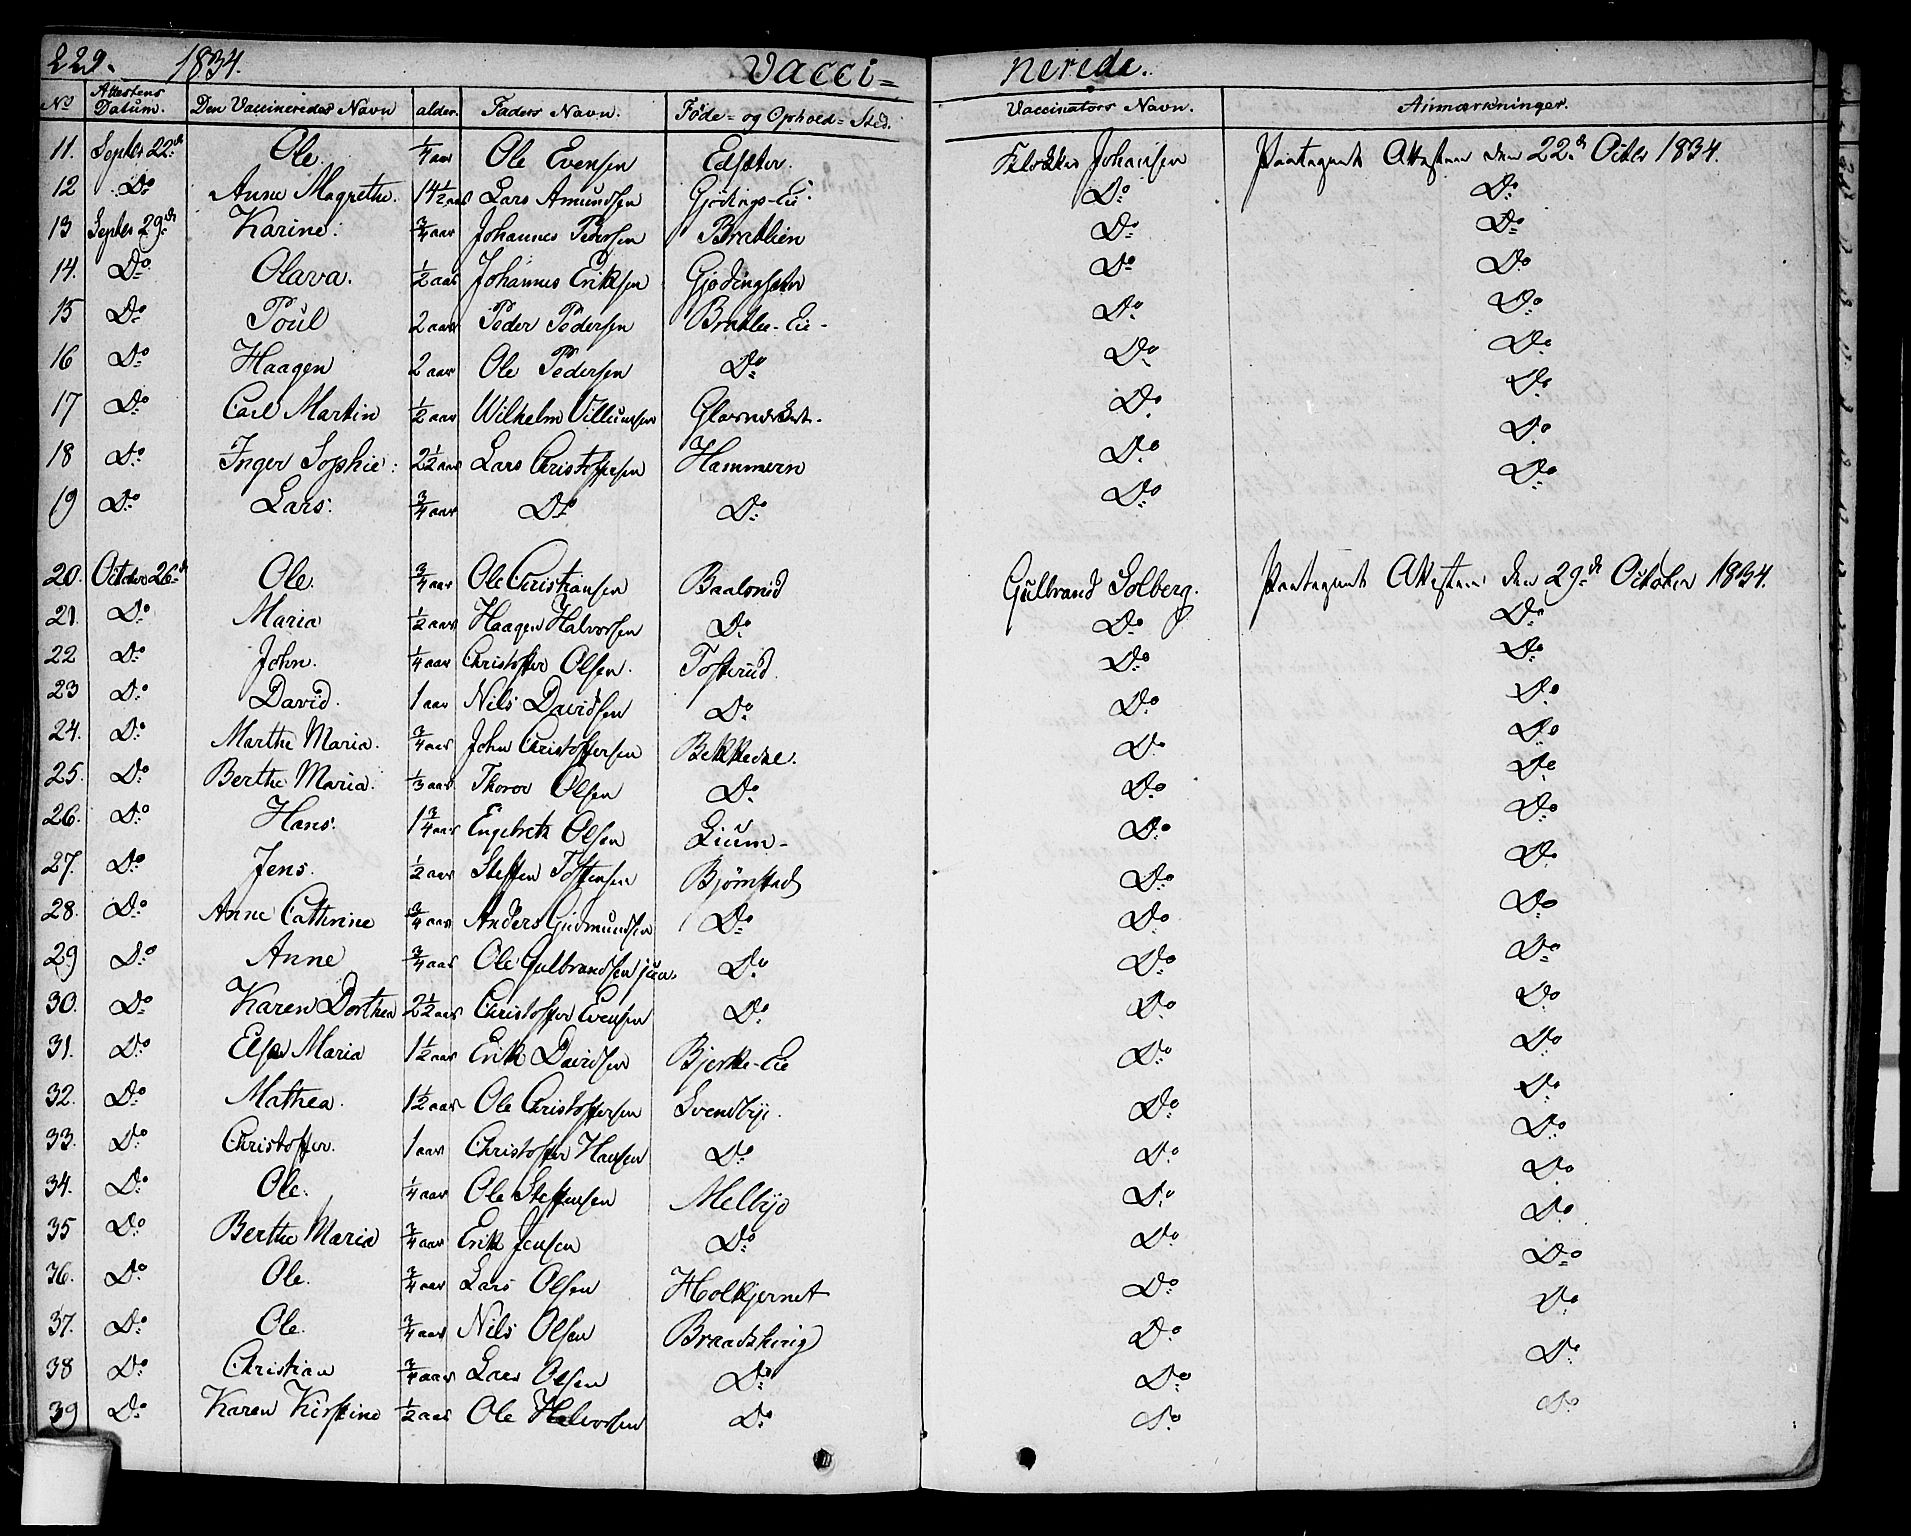 229. 1834. Vacci= nerede.
No Attestens Datum. Den Vaccineredes Navn alder. Faders Navn. Føde= og Ophold= Sted. Vaccinators Navn. Anmærkninger.
11. Septbr 22d Ole. 1/4 aar Ole Evensen Edsæter. Klokker Johansen Attesten den 22d Octbr 1834.
12 Do Anne Magrethe. 14 1/2 aar Lars Amundsen Gjødings-Eie Do Do
13 Septbr 29de Karine. 3/4 aar Johannes Pedersen Bratlien Do Do
14. Do Olava. 1/2 aar Johannes Eriksen Gjødingsætr Do Do
15 Do Poul 2 aar Peder Pedersen Bratlie-Eie- Do Do
16 Do Haagen 2 aar Ole Pedersen Do Do Do
17 Do Carl Martin 1/2 aar Wilhelm Villumsen Do Do
18 Do Inger Sophie: 2 1/2 aar Lars Christoffersen Hammern Do Do
19 Do Lars: 3/4 aar Do Do Do Do
20. October 26d Ole. 3/4 aar Ole Christiansen Baalsrud Gulbrand Solberg. Attesten den 29de October 1834.
21. Do Maria 1/2 aar Haagen Halvorsen Do Do Do
22 Do John. 1/4 aar Christoffer Olsen. Tosterud. Do Do
23 Do David. 1 aar Nils Davidsen Do Do Do
24. Do Marthe Maria. 3/4 aar John Christoffersen Do Do
25. Do Berthe Maria. 1/3 aar Thorer Olsen Do Do Do
26. Do Hans. 1 3/4 aar Engebreth Olsen Lium- Do Do
27. Do Jens. 1/2 aar Steffen Tostensen Bjørnstad Do Do
28. Do Anne Cathrine 3/4 aar Anders Gudmundsen Do Do Do
29 Do Anne 3/4 aar Ole Gulbrandsen jun. Do Do Do
30. Do Karen Dorthea 2 1/2 aar Christoffer Evensen Do Do Do
31. Do Else Maria 1 1/2 aar Erik Davidsen Bjerke-Eie Do Do
32. Do Mathea. 1 1/2 aar Ole Christoffersen Svendbye. Do Do
33. Do Christoffer. 1 aar Christoffer Hansen Do Do Do
34. Do Ole. 1/4 aar Ole Steffensen Melbye Do Do
35 Do Berthe Maria 3/4 aar Erik Jensen Do Do Do
36. Do Ole. 3/4 aar Lars Olsen Holkjernet Do Do
37. Do Ole. 3/4 aar Nils Olsen Do Do
38 Do Christian 3/4 aar Lars Olsen Do Do Do
39 Do Karen Kirstine 1/2 aar Ole Halvorsen Do Do Do